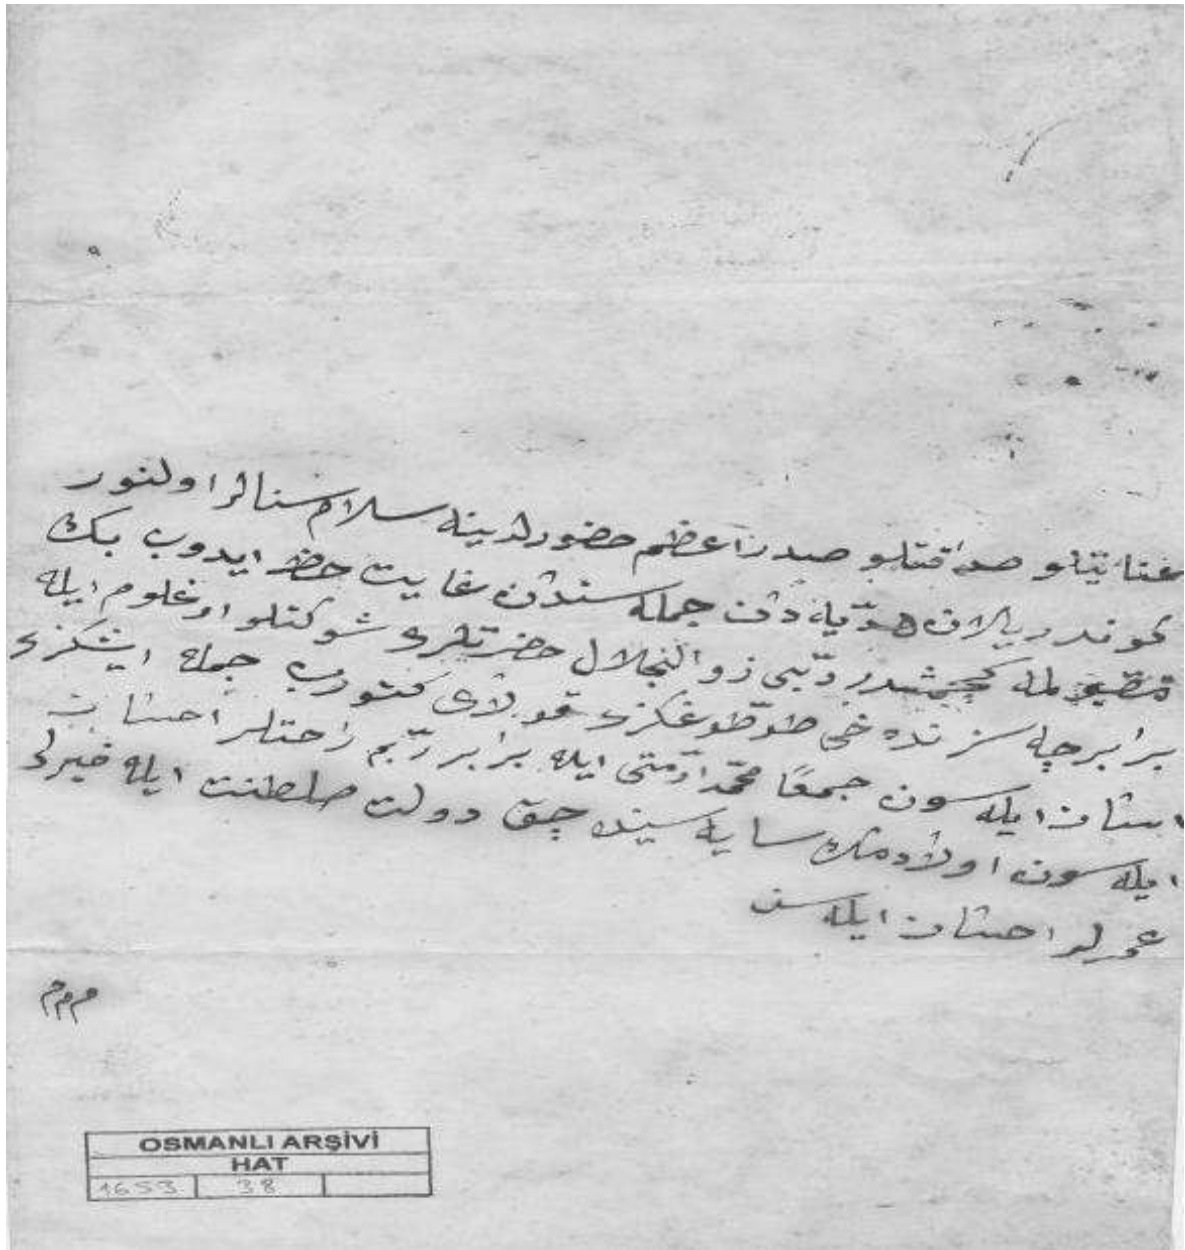 عنايتلو صداقتلو صدر اعظم حضورلرينه سلام ثنالر اولنور
كوندريلان هديه دن جمله سندن غايت حظ ايدوب بك
كچمشدر ربى ذو الجلال حضرتلرى شوكتلو اوغلوم ايله
برابرجه سزنده خى طوتطوغكزى قولاى كتورب جمله ايشكزى
احسان ايله سون جمعًا محمّد امّتى ايله برابر ربّم راحتلر احسان
ايله سون اولادمك سايه سينده چوق دولت صلطنت ايله خيرلى
عمرلر احسان ايله سن
OSMANLI ARŞİVİ
HAT
1653 38